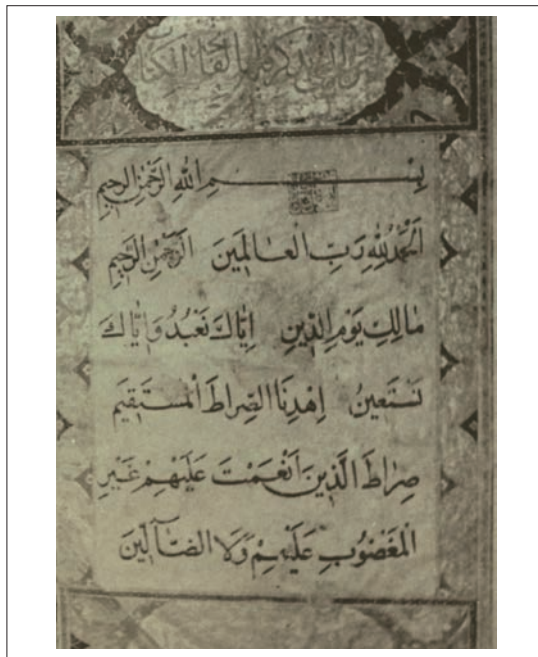 بِسْمِ اللهِ الرَّحْمٰنِ الرَّحِيمِ
اَلْحَمْدُ لِلّٰهِ رَبِّ الْعَالَمِينَ الرَّحْمٰنِ الرَّحِيمِ
مَالِكِ يَوْمِ الدِّينِ اِيَّاكَ نَعْبُدُ وَاِيَّاكَ
نَسْتَعِينُ اِهْدِنَا الصِّرَاطَ الْمُسْتَقِيمَ
صِرَاطَ الَّذِينَ اَنْعَمْتَ عَلَيْهِمْ غَيْرِ
الْمَغْضُوبِ عَلَيْهِمْ وَلَا الضَّآلِّينَ